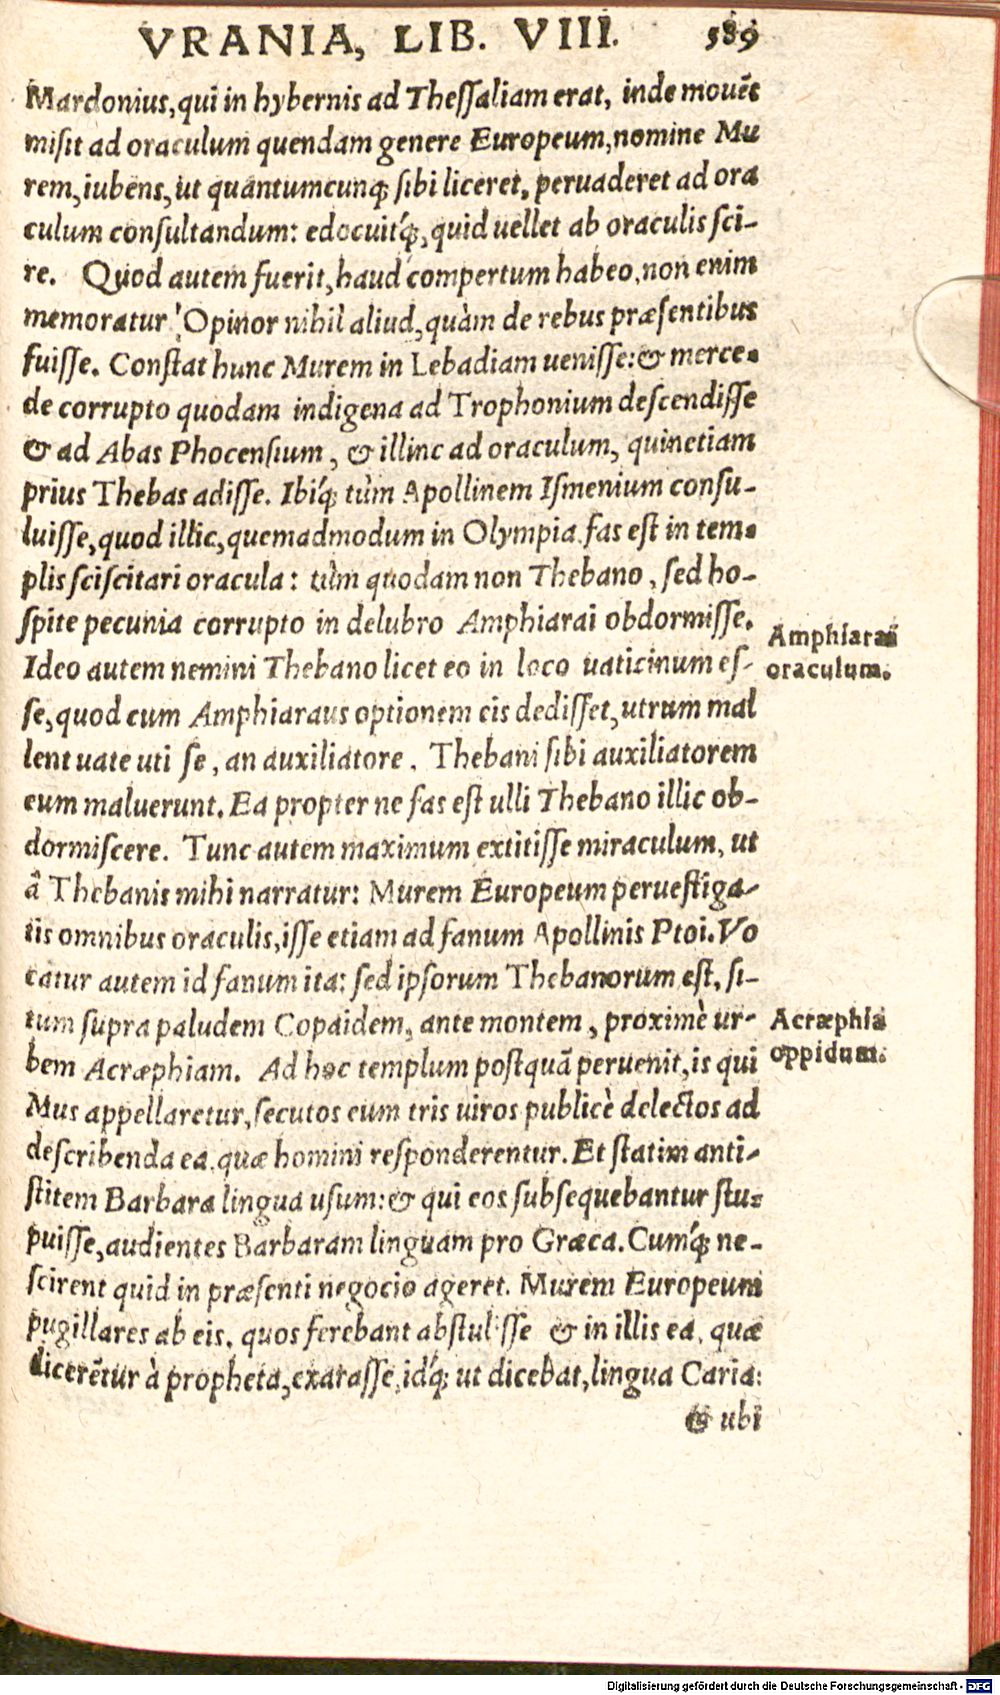 VRANIA, LIB. VIII. 589
Mardonius, qui in hybernis ad Thessaliam erat, inde mouẽs
misit ad oraculum quendam genere Europeum, nomine Mu
rem, iubens, ut quantumcunq; sibi liceret, peruaderet ad ora
culum consultandum: edocuitq́;, quid uellet ab oraculis sci-
re. Quod autem fuerit, haud compertum habeo, non enim
memoratur. Opinor nihil aliud, quàm de rebus præsentibus
fuisse. Constat hunc Murem in Lebadiam uenisse: & merce-
de corrupto quodam indigena ad Trophonium descendisse
& ad Abas Phocensium, & illinc ad oraculum, quinetiam
prius Thebas adisse. Ibiq́; tùm Apollinem Ismenium consu-
luisse, quod illic, quemadmodum in Olympia fas est in tem-
plis sciscitari oracula: tùm quodam non Thebano, sed ho-
spite pecunia corrupto in delubro Amphiarai obdormisse.
Amphiarai
oraculum.
Ideo autem nemini Thebano licet eo in loco uaticinum es-
se, quod cum Amphiaraus optionem eis dedisset, utrum mal
lent uate uti se, an auxiliatore. Thebani sibi auxiliatorem
eum maluerunt. Ea propter ne fas est ulli Thebano illic ob-
dormiscere. Tunc autem maximum extitisse miraculum, ut
â Thebanis mihi narratur: Murem Europeum peruestiga-
tis omnibus oraculis, isse etiam ad fanum Apollinis Ptoi. Vo
catur autem id fanum ita: sed ipsorum Thebanorum est, si-
tum supra paludem Copaidem, ante montem, proximè ur-
Acræphia
oppidum.
bem Acræphiam. Ad hoc templum postquã peruenit, is qui
Mus appellaretur, secutos eum tris uiros publicè delectos ad
describenda ea, quæ homini responderentur. Et statim anti-
stitem Barbara lingua usum: & qui eos subsequebantur stu-
puisse, audientes Barbaram linguam pro Græca. Cumq́; ne-
scirent quid in præsenti negocio ageret. Murem Europeum
pugillares ab eis, quos ferebant abstulisse & in illis ea, quæ
dicerẽtur à propheta, exarasse, idq́; ut dicebat, lingua Caria:
& ubi
Digitalisierung gefördert durch die Deutsche Forschungsgemeinschaft - DFG